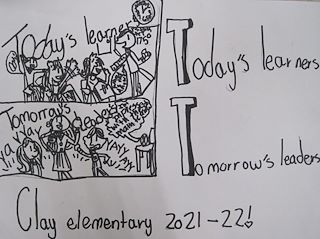 Today's learners
Tomorrow's leaders
yay
Today's learners
Tomorrow's leaders
Clay elementary 2021-22!